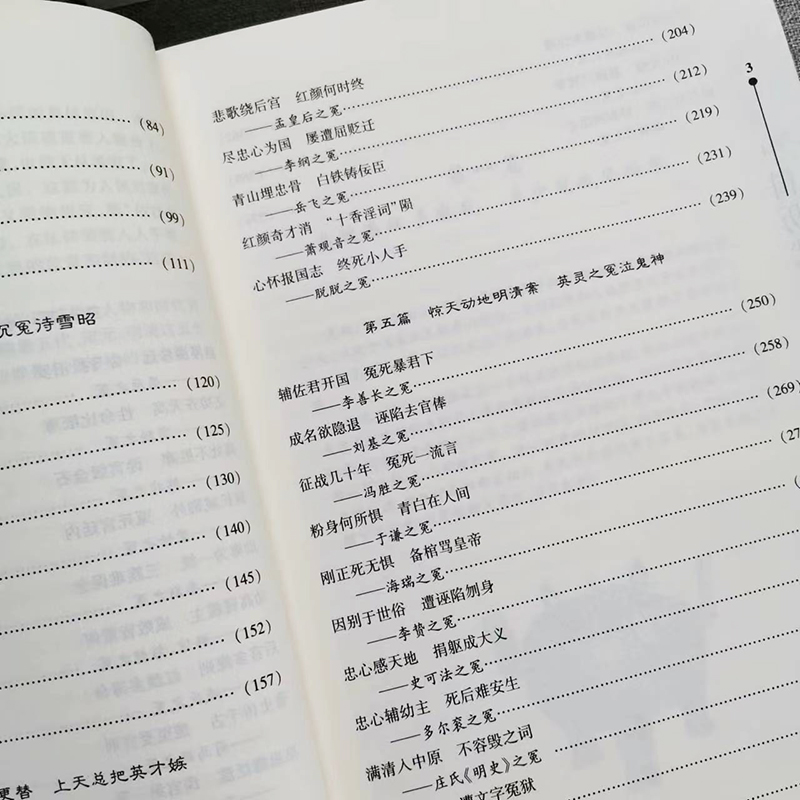 (84)
(91)
(99)
(111)
沉冤待雪昭
(120)
(125)
(130)
(140)
(145)
(152)
(157)
更替 上天总把英才嫉
3
悲歌绕后宫 红颜何时终
——孟皇后之冤 (204)
尽忠心为国 屡遭屈贬迁
——李纲之冤 (212)
青山埋忠骨 白铁铸佞臣
——岳飞之冤 (219)
红颜奇才消 “十香淫词”陨
——萧观音之冤 (231)
心怀报国志 终死小人手
——脱脱之冤 (239)
第五篇 惊天动地明清案 英灵之冤泣鬼神
辅佐君开国 冤死暴君下
——李善长之冤 (250)
成名欲隐退 诬陷去官俸
——刘基之冤 (258)
征战几十年 冤死一流言
——冯胜之冤 (269)
粉身何所惧 青白在人间
——于谦之冤
刚正死无惧 备棺骂皇帝
——海瑞之冤
因别于世俗 遭诬陷刎身
——李贽之冤
忠心感天地 捐躯成大义
——史可法之冤
忠心辅幼主 死后难安生
——多尔衮之冤
满清人中原 不容毁之词
——庄氏《明史》之冤
遭文字冤狱